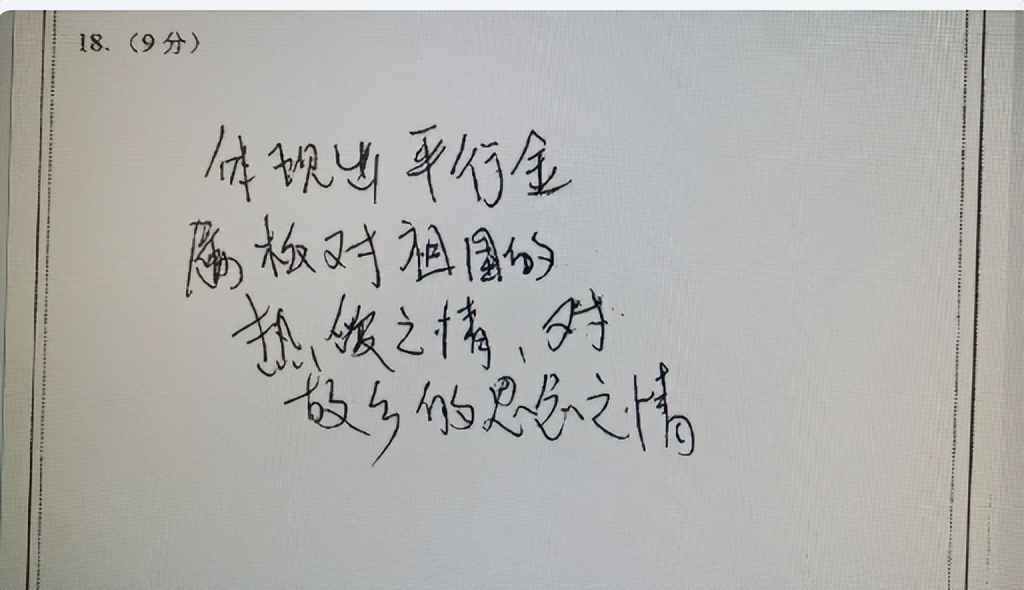 18.（9 分）
体现出平行金
属板对祖国的
热爱之情、对
故乡的思念之情